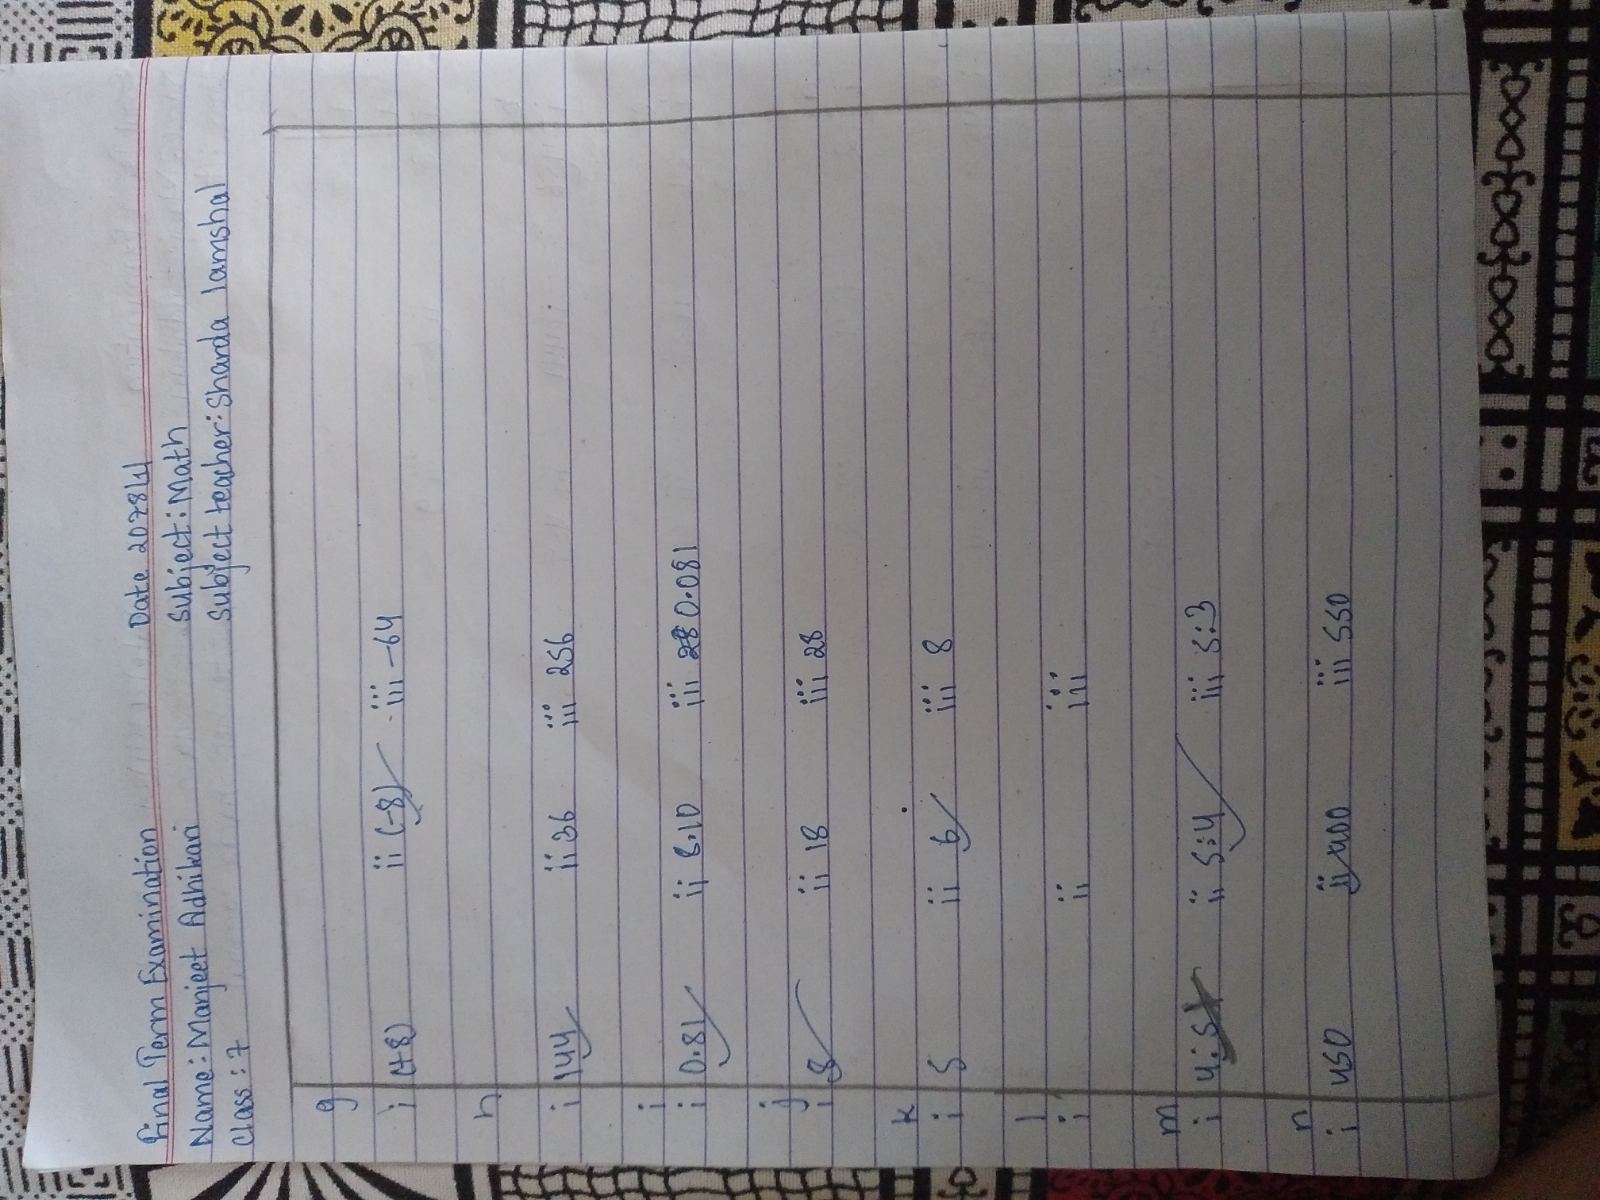 Final Term Examination Date 2078/1/
Name: Manjeet Adhikari Subject: Math
Class: 7 Subject teacher: Sharda lamshal
g
i (+8) ii (-8) iii -64
h
i 144 ii 36 iii 256
i
i 0.81 ii 8.10 iii 0.081
j
i 8 ii 18 iii 28
k
i 5 ii 6 iii 8
l
i ii iii
m
i 4:5 ii 5:4 iii 5:3
n
i 450 ii iii 550